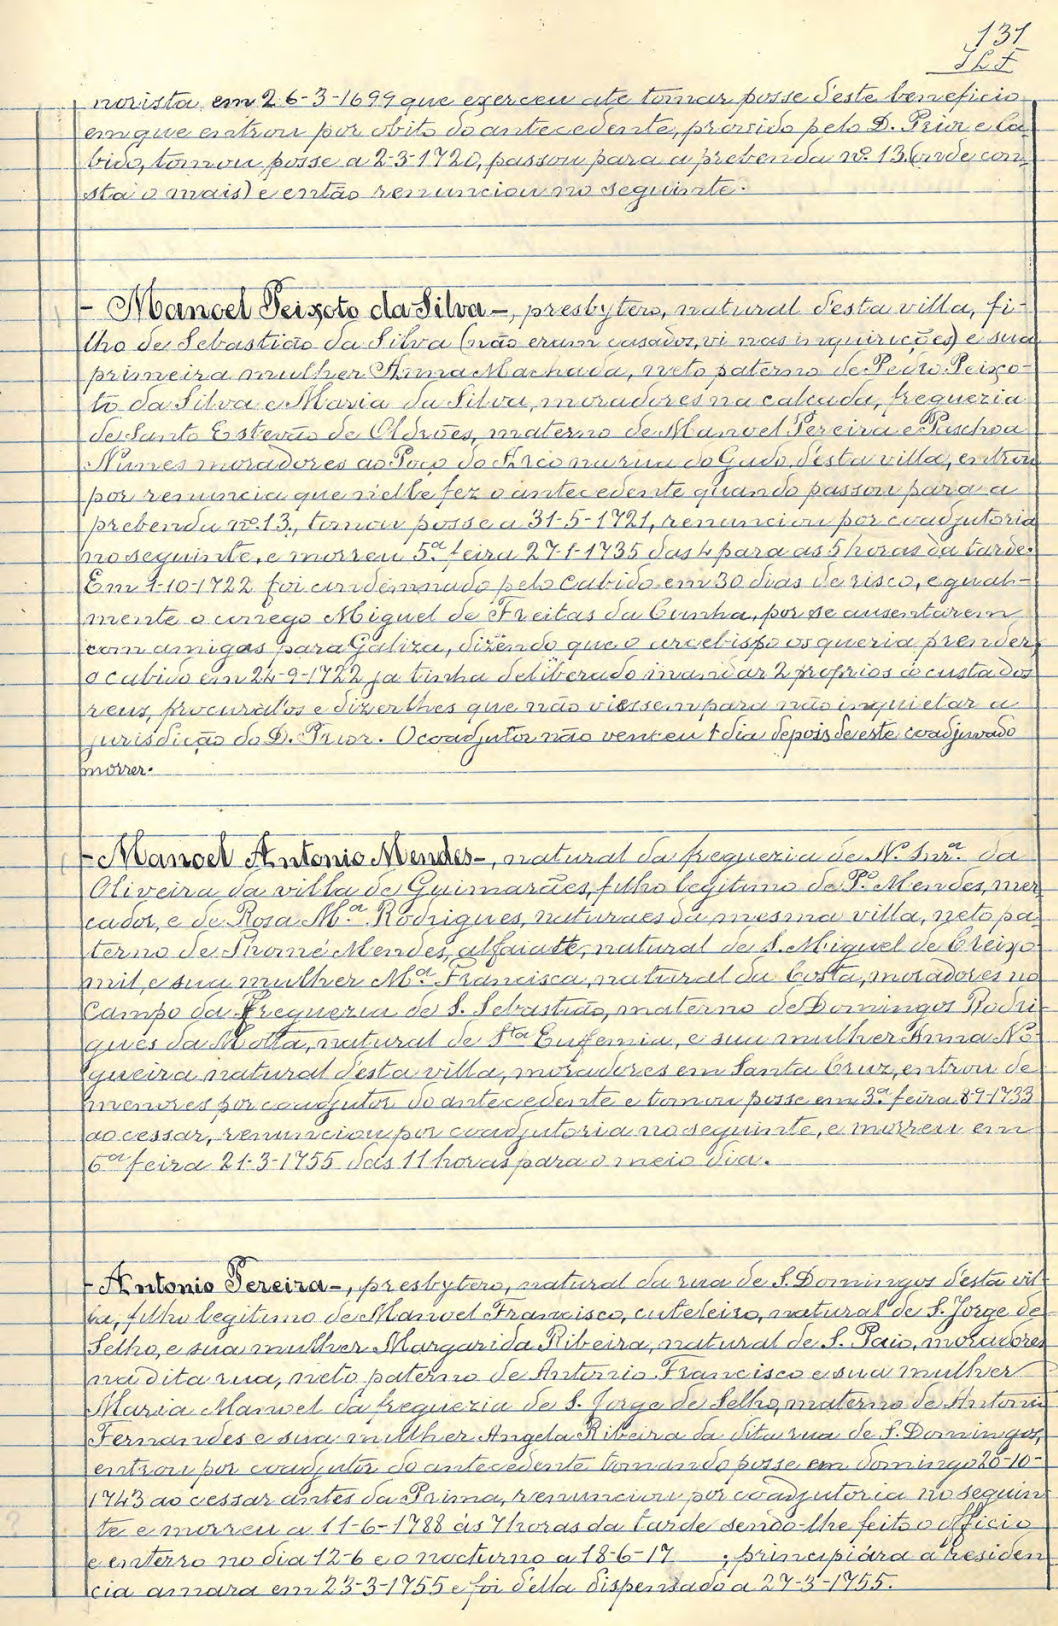 131
JLF
norista em 26-3-1699 que exerceu até tomar posse d'este beneficio
em que entrou por obito do antecedente, provido pelo D. Prior e Ca-
bido, tomou posse a 2-3-1720, passou para a prebenda nº. 13 (onde con-
sta o mais) e então renunciou no seguinte.
- Manoel Peixoto da Silva -, presbytero, natural d'esta villa, fi-
lho de Sebastião da Silva (não eram casados, vi nas inquirições) e sua
primeira mulher Anna Machada, neto paterno de Pedro Peixo-
to da Silva e Maria da Silva, moradores na calçada, freguezia
de Santo Estevão de Oldrões, materno de Manoel Pereira e Paschoa
Nunes moradores ao Poço do Arco na rua do Gado d'esta villa, entrou
por renuncia que n'elle fez o antecedente quando passou para a
prebenda nº. 13, tomou posse a 31-5-1721, renunciou por coadjutoria
no seguinte, e morreu 5.ª feira 27-1-1735 das 4 para as 5 horas da tarde.
Em 1-10-1722 foi condemnado pelo Cabido em 30 dias de risco, e egual-
mente o conego Miguel de Freitas da Cunha, por se ausentarem
com amigos para Galiza, dizendo que o arcebispo os queria prender,
o cabido em 24-9-1722 ja tinha deliberado mandar 2 proprios á custa dos
reus, procural'os e dizer lhes que não viessem para não inquietar a
jurisdição do D. Prior. O coadjutor não venceu 1 dia depois de este coadjuvado
morrer.
- Manoel Antonio Mendes -, natural da freguezia de N. Snr.ª da
Oliveira da villa de Guimarães, filho legitimo de P.º Mendes, mer-
cador, e de Rosa M.ª Rodrigues, naturaes da mesma villa, neto pa-
terno de Thomé Mendes, alfaiate, natural de S. Miguel de Creixo-
mil, e sua mulher M.ª Francisca, natural da Costa, moradores no
Campo da Freguezia de S. Sebastião, materno de Domingos Rodri-
gues da Motta, natural de S.ta Eufemia, e sua mulher Anna No-
gueira natural d'esta villa, moradores em Santa Cruz, entrou de
menores por coadjutor do antecedente e tomou posse em 3.ª feira 8-9-1733
ao cessar, renunciou por coadjutoria no seguinte, e morreu em
6ª feira 21-3-1755 das 11 horas para o meio dia.
- Antonio Pereira -, presbytero, natural da rua de S. Domingos d'esta vil-
la, filho legitimo de Manoel Francisco, cuteleiro, natural de S. Jorge de
Selho, e sua mulher Margarida Ribeira, natural de S. Paio, moradores
na dita rua, neto paterno de Antonio Francisco e sua mulher
Maria Manoel da freguezia de S. Jorge de Selho, materno de Antonio
Fernandes e sua mulher Angela Ribeira da dita rua de S. Domingos,
entrou por coadjutor do antecedente tomando posse em domingo 20-10-
1743 ao cessar antes da Prima, renunciou por coadjutoria no seguin-
te e morreu a 11-6-1788 ás 7 horas da tarde sendo-lhe feito o officio
e enterro no dia 12-6 e o nocturno a 18-6-17 ; principiára a residen-
cia amara em 23-3-1755 e foi d'ella dispensado a 27-3-1755.